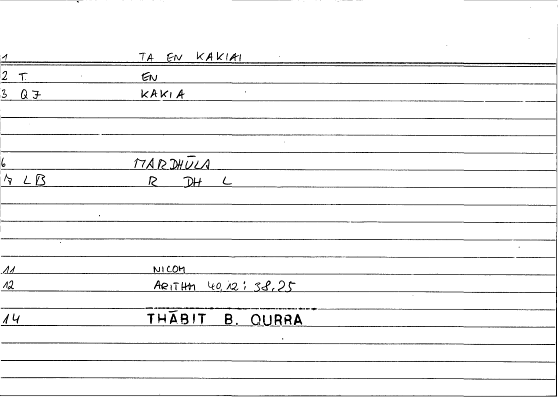 1 TA EN KAKIAI
2 T. EN
3 Q7 KAKIA
6 MARDHŪLA
7 LB R DH L
11 NICOM
12 ARITHM 40,12; 38,25
14 THĀBIT B. QURRA